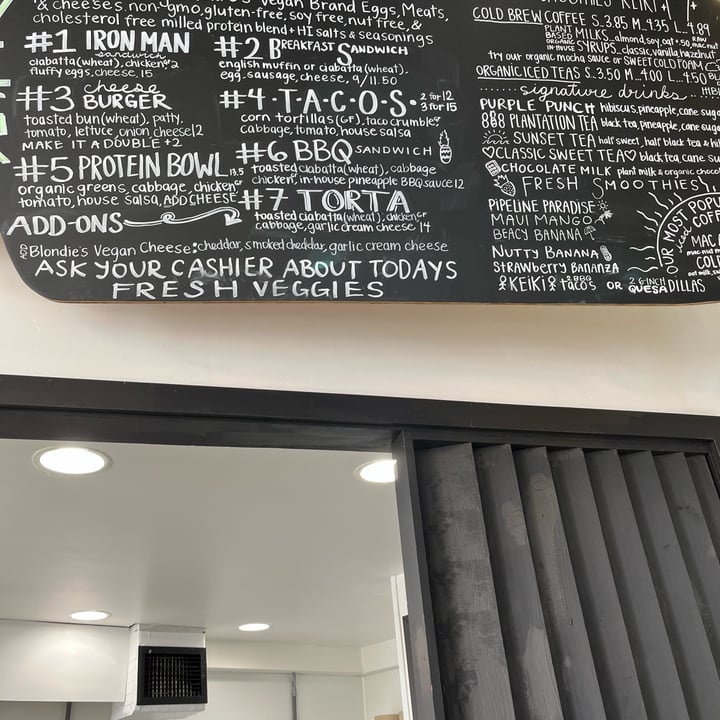 & cheeses. non-gmo, gluten-free, soy free, nut free, &
Vegan Brand Eggs, Meats,
cholesterol free milled protein blend + HI salts & seasonings
#1 IRON MAN
sandwich
ciabatta (wheat), chicken +2
fluffy eggs, cheese, 15
#2 BREAKFAST SANDWICH
english muffin or ciabatta (wheat),
egg, sausage, cheese, 9/11.50
#3 cheese BURGER
toasted bun (wheat), patty,
tomato, lettuce, onion cheese 12
MAKE IT A DOUBLE +2
#4 • T•A•C•O•S • 2 for 12
3 for 15
corn tortillas (GF), taco crumble,
cabbage, tomato, house salsa
#5 PROTEIN BOWL 13.5
organic greens, cabbage, chicken GF
tomato, house salsa, ADD CHEESE
#6 BBQ SANDWICH
toasted ciabatta (wheat), cabbage
chicken, in-house pineapple BBQ sauce 12
#7 TORTA
toasted ciabatta (wheat), chicken GF
cabbage, garlic cream cheese 14
ADD-ONS
ADD Blondie's Vegan Cheese: cheddar, smoked cheddar, garlic cream cheese
ASK YOUR CASHIER ABOUT TODAYS
FRESH VEGGIES
COLD BREW COFFEE S..3.85 M..4.35 L..4.89
PLANT BASED MILKS..almond, soy, oat +.50, mac nut
ORGANIC IN-HOUSE SYRUPS..classic, vanilla, hazelnut
try our organic mocha sauce or SWEET COLD FOAM
ORGANIC ICED TEAS S..3.50 M..4.00 L..4.50
signature drinks
PURPLE PUNCH hibiscus, pineapple, cane sugar
808 PLANTATION TEA black tea, pineapple, cane
SUNSET TEA half sweet, half black tea &
CLASSIC SWEET TEA black tea, cane
CHOCOLATE MILK plant milk & organic
FRESH SMOOTHIES
PIPELINE PARADISE
MAUI MANGO
BEACY BANANA
NUTTY BANANA
STRAWBERRY BANANZA
KEIKI 2 BBQ tacos OR 2 6-INCH QUESADILLAS
OUR MOST POPULAR
iced COFFEE
MAC
COLD